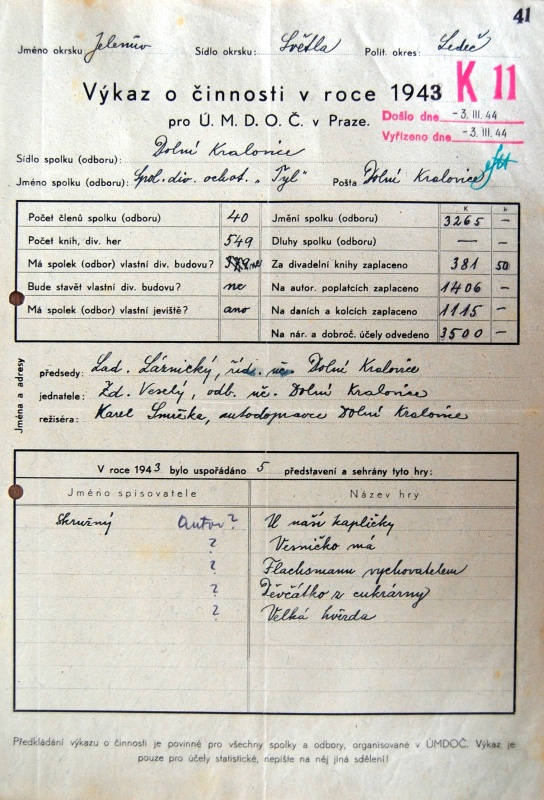 41
Jméno okrsku: Jelenův Sídlo okrsku: Světla Polit. okres: Ledeč
Výkaz o činnosti v roce 1943 K 11
pro Ú. M. D. O. Č. v Praze.
Došlo dne -3. III. 44
Vyřízeno dne -3. III. 44
Sídlo spolku (odboru): Dolní Kralovice
Jméno spolku (odboru): Spol. div. ochot. „Tyl" Pošta Dolní Kralovice
K h
Počet členů spolku (odboru) 40 Jmění spolku (odboru) 3265 —
Počet knih, div. her 549 Dluhy spolku (odboru) — —
Má spolek (odbor) vlastní div. budovu? ne Za divadelní knihy zaplaceno 381 50
Bude stavět vlastní div. budovu? ne Na autor. poplatcích zaplaceno 1406 —
Má spolek (odbor) vlastní jeviště? ano Na daních a kolcích zaplaceno 1115 —
Na nár. a dobroč. účely odvedeno 3500 —
Jména a adresy
předsedy: Lad. Láznický, říd. uč. Dolní Kralovice
jednatele: Zd. Veselý, odb. uč. Dolní Kralovice
režiséra: Karel Smrčka, autodopravce Dolní Kralovice
V roce 1943 bylo uspořádáno 5 představení a sehrány tyto hry:
Jméno spisovatele Název hry
Skružný Autor? U naší kapličky
? Vesničko má
? Flachsmann vychovatelem
? Děvčátko z cukrárny
? Velká hvězda
Předkládání výkazu o činnosti je povinné pro všechny spolky a odbory, organisované v ÚMDOČ. Výkaz je
pouze pro účely statistické, nepište na něj jiná sdělení!